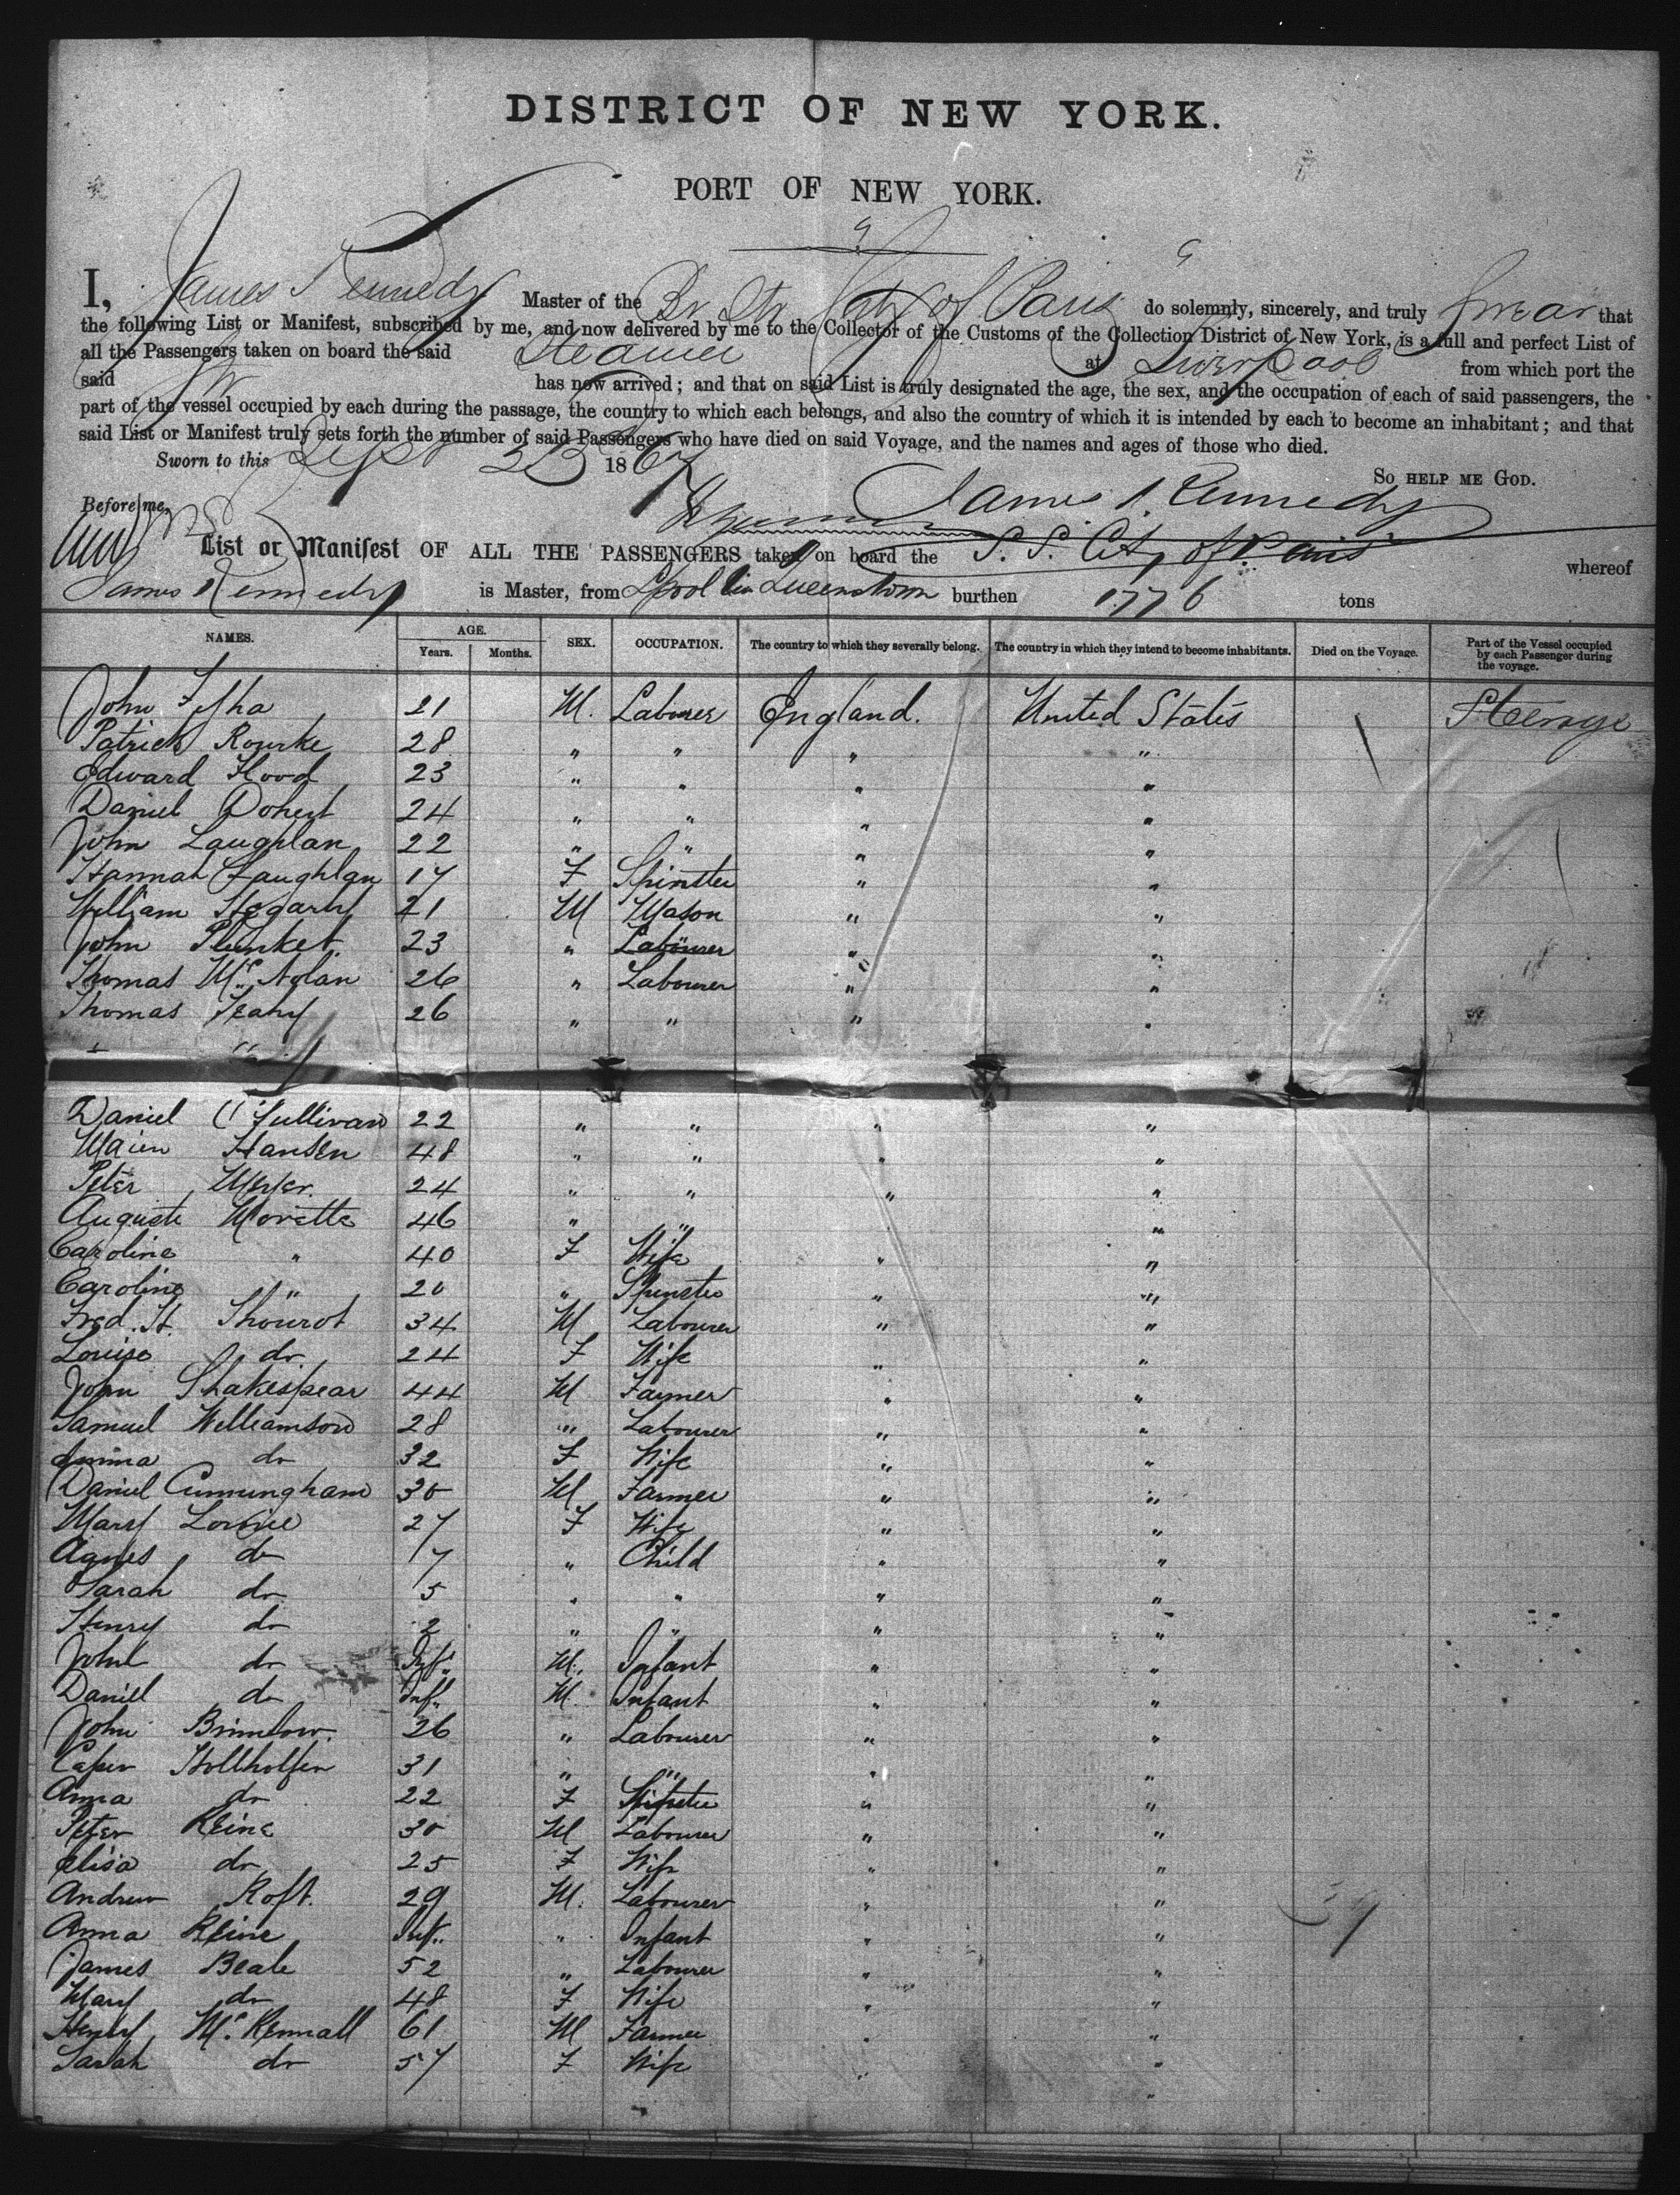 DISTRICT OF NEW YORK.
PORT OF NEW YORK.
I, James Kennedy Master of the Br Str City of Paris do solemnly, sincerely, and truly swear that
the following List or Manifest, subscribed by me, and now delivered by me to the Collector of the Customs of the Collection District of New York, is a full and perfect List of
all the Passengers taken on board the said Steamer at Liverpool from which port the
said Str has now arrived; and that on said List is truly designated the age, the sex, and the occupation of each of said passengers, the
part of the vessel occupied by each during the passage, the country to which each belongs, and also the country of which it is intended by each to become an inhabitant; and that
said List or Manifest truly sets forth the number of said Passengers who have died on said Voyage, and the names and ages of those who died.
Sworn to this Sept 23 1867
So HELP ME GOD.
Before me, James Kennedy
List or Manifest OF ALL THE PASSENGERS taken on board the S. S. City of Paris whereof
James Kennedy is Master, from Lpool via Queenstown burthen 1776 tons
NAMES. AGE. Years. Months. SEX. OCCUPATION. The country to which they severally belong. The country in which they intend to become inhabitants. Died on the Voyage. Part of the Vessel occupied by each Passenger during the voyage.
John 21 M. Labourer England. United States Steerage
Patrick Rourke 28 " " " "
Edward Flood 23 " " " "
Daniel Dohert 24 " " " "
John Laughlan 22 " " " "
Hannah Laughlan 17 F Spinster " "
William Hogarty 21 M Mason " "
John Plunket 23 " Labourer " "
Thomas Mc Nolan 26 " Labourer " "
Thomas Feahy 26 " " " "
Daniel O'Sullivan 22 " " " "
Hansen 48 " " " "
Peter Meyer 24 " " " "
Auguste Morette 46 " " "
Caroline " 40 F Wife " "
Caroline " 20 " Spinster " "
Fred. St. Thourot 34 M Labourer " "
Louise do 24 F Wife " "
John Shakespear 44 M Farmer " "
Samuel Williamson 28 " Labourer " "
Emma do 32 F Wife " "
Daniel Cunningham 30 M Farmer " "
Mary 27 F Wife " "
Agnes do 7 " Child " "
Sarah do 5 " " " "
Henry do 2 " " " "
John do Inft. M. Infant " "
Daniel do Inft. M. Infant " "
John Brimlow. 26 " Labourer " "
Hollholfen 31 " " " "
Anna do 22 F " "
Peter Reine 30 M Labourer " "
Elisa do 25 F Wife " "
Andrew Roft. 29 M. Labourer " "
Anna Reine Inft. " Infant " "
James Beale 52 " Labourer " "
Mary do 48 F Wife " "
Henry Mc Kennall 61 M Farmer " "
Sarah do 57 F Wife " "
39